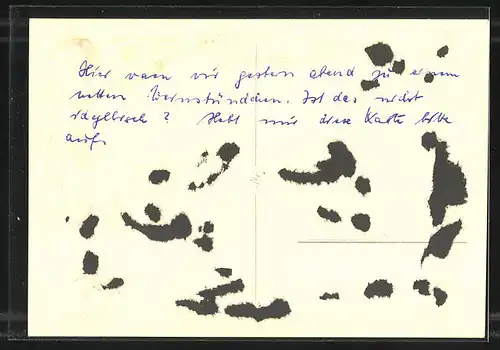 Hier waren wir gestern abend zu einem
netten Bierstündchen. Ist das nicht
idyllisch? Hebt mir diese Karte bitte
auf.